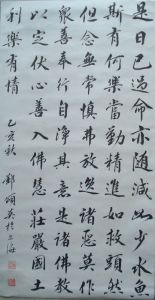 是日已過命亦隨減如少水魚
斯有何樂當勤精進如救頭然
但念無常慎勿放逸諸惡莫作
眾善奉行自淨其意是諸佛惡
以定伏心善入佛慧莊嚴國土
利樂有情
乙亥秋 鄧頌英於上海